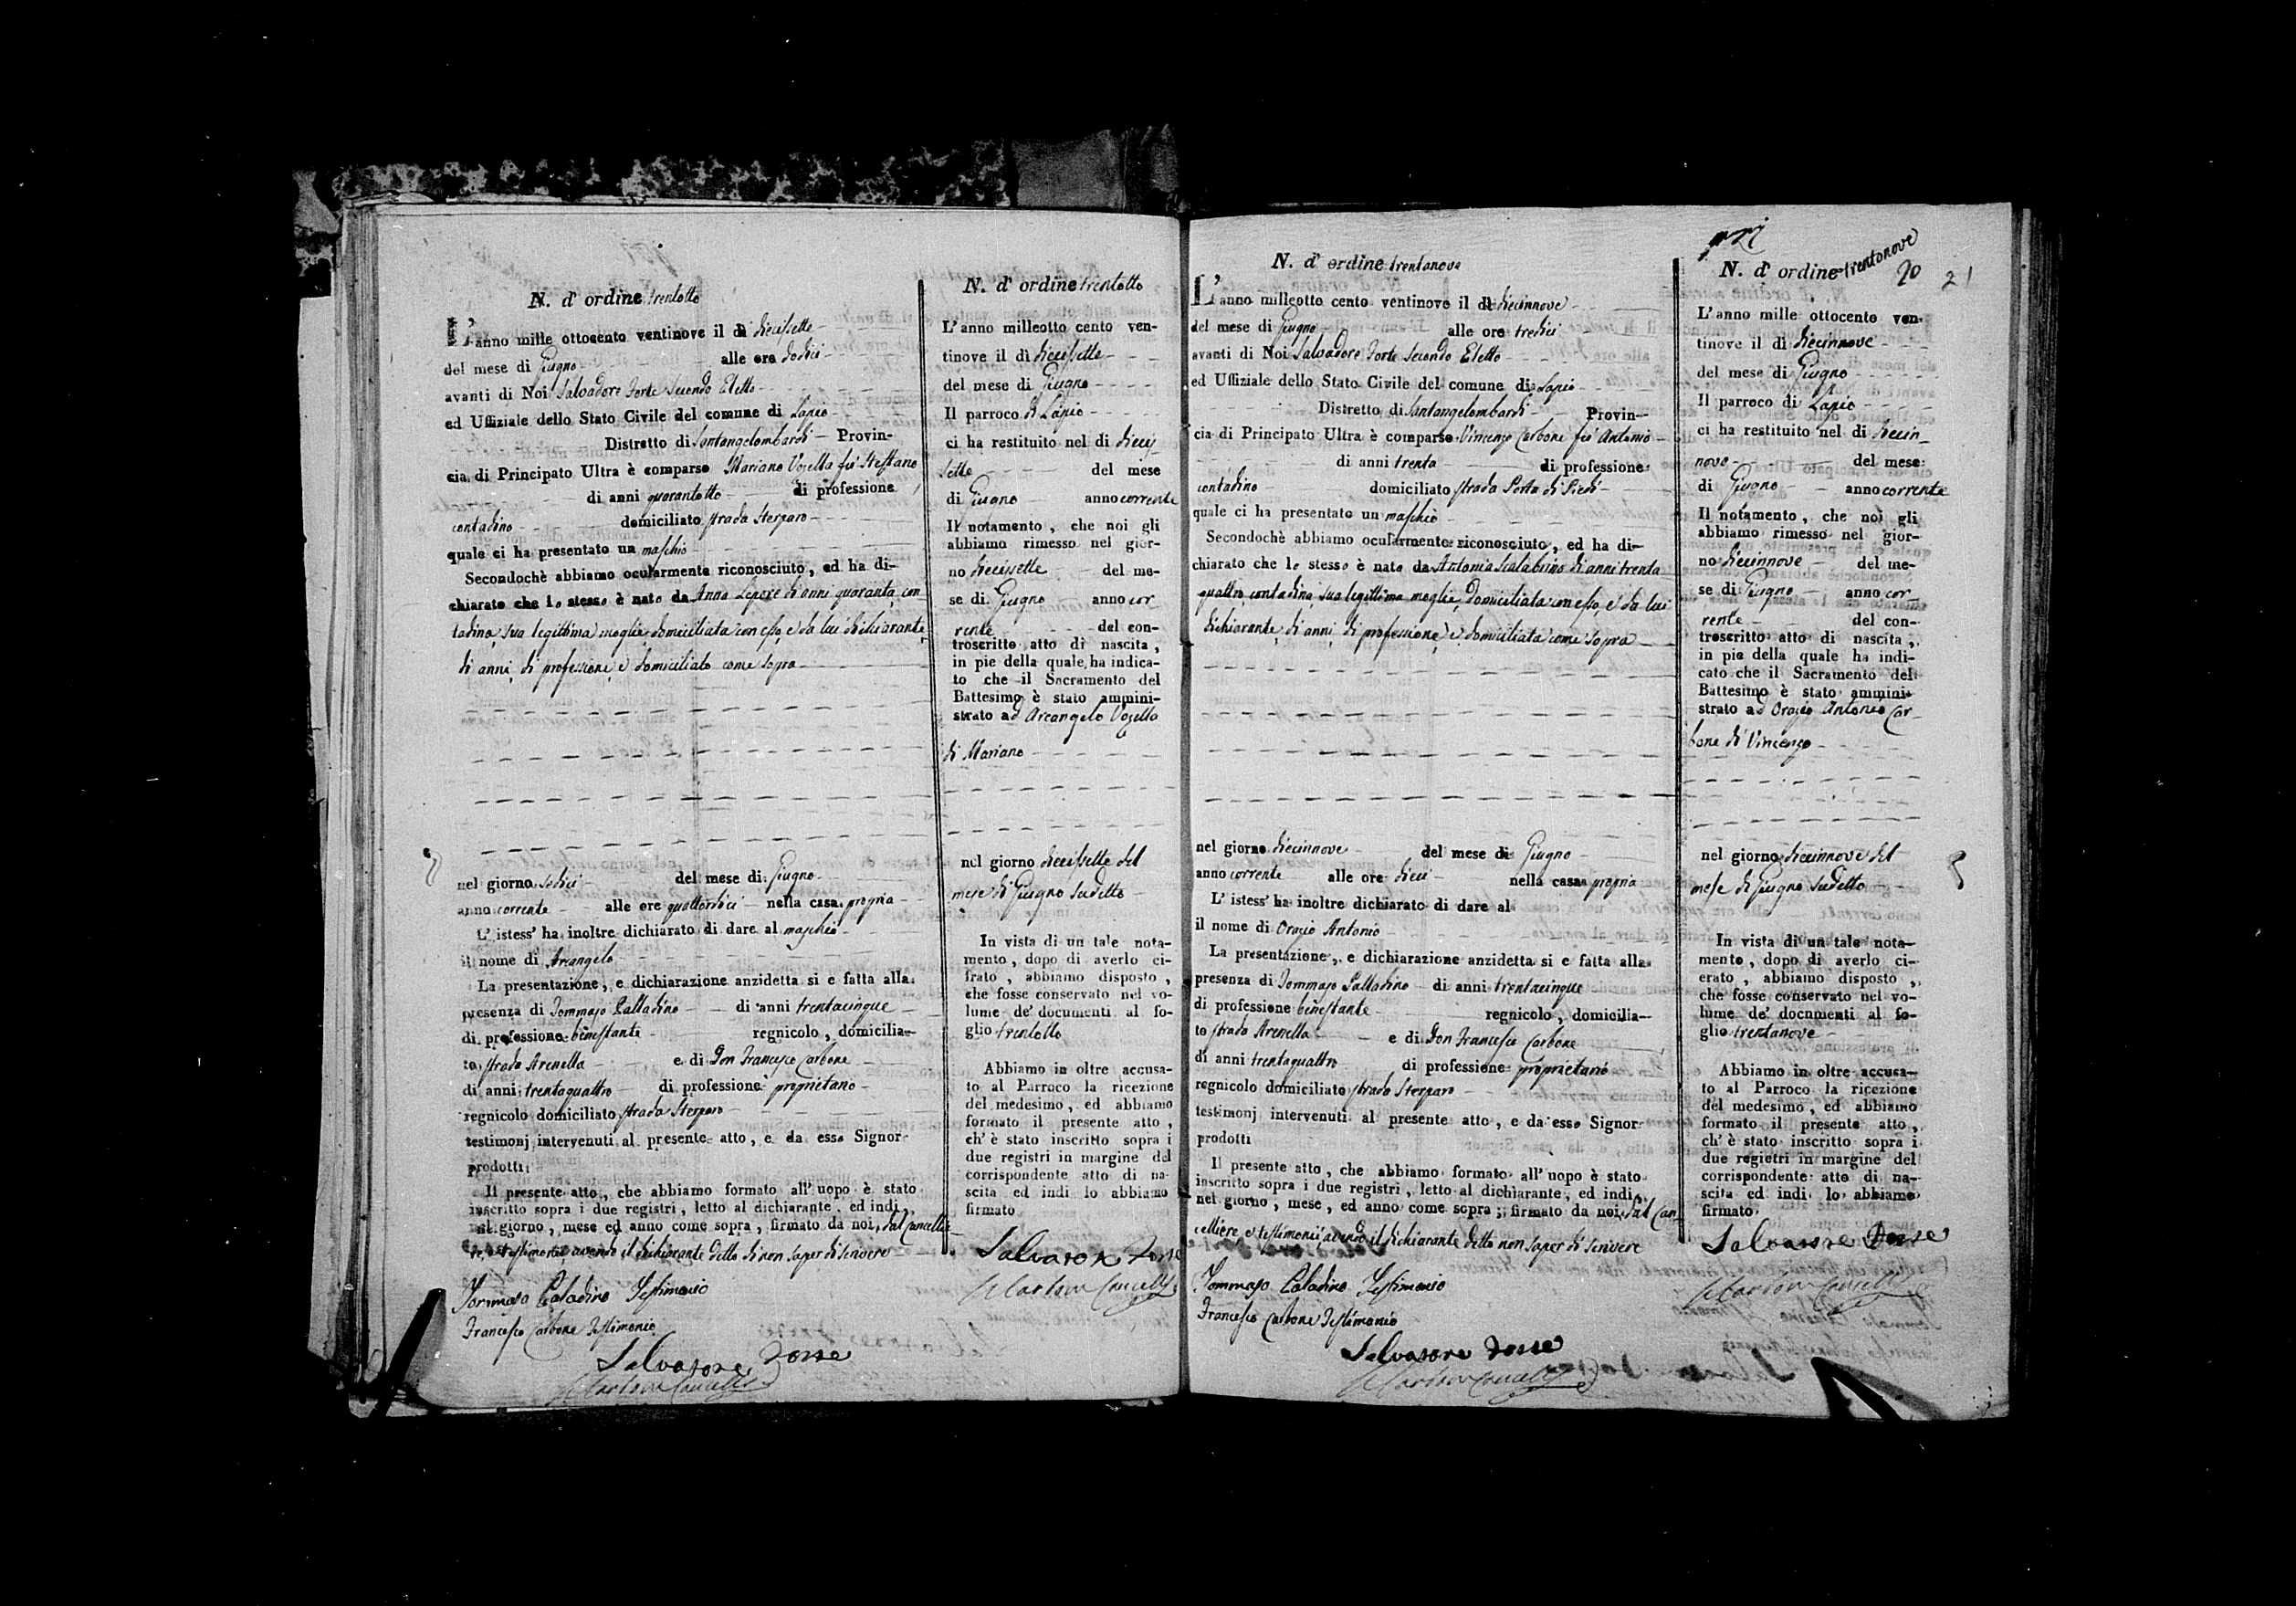 N. d' ordine trentotto
L'anno mille ottocento ventinove il dì diecissette
del mese di Giugno alle ore dodici
avanti di Noi Salvadore Forte Secondo Eletto
ed Uffiziale dello Stato Civile del comune di Lapio
Distretto di Santangelombardi Provin-
cia di Principato Ultra è comparso Mariano Vozella fù Steffano
di anni quarantotto di professione
contadino domiciliato strada Sterparo
quale ci ha presentato un maschio
Secondochè abbiamo ocularmente riconosciuto, ed ha di-
chiarato che lo stesso è nato da Anna Lepore di anni quaranta, con
tadina, sua legittima moglie, domiciliata con esso, e da lui dichiarante,
di anni, di professione, e domiciliato come sopra
nel giorno sedici del mese di Giugno
anno corrente alle ore quattordici nella casa propria
L' istess' ha inoltre dichiarato di dare al maschio
il nome di Arcangelo
La presentazione, e dichiarazione anzidetta si e fatta alla
presenza di Tommaso Palladino di anni trentacinque
di professione benestante regnicolo, domicilia-
to strada Arenella e di Don Francesco Carbone
di anni trentaquattro di professione proprietario
regnicolo domiciliato strada Sterparo
testimonj intervenuti al presente atto, e da esso Signor
prodotti
Il presente atto, che abbiamo formato all' uopo è stato
inscritto sopra i due registri, letto al dichiarante, ed indi,
nel giorno, mese ed anno come sopra, firmato da noi, dal Cancellie
re, e testimonii, avendo il dichiarante detto di non saper di scrivere
Tommaso Paladino Testimonio
Francesco Carbone Testimonio
Salvatore Forte
N. d' ordine trentotto
L'anno milleotto cento ven-
tinove il dì diecissette
del mese di Giugno
Il parroco di Lapio
ci ha restituito nel dì diecis
sette del mese
di Giugno anno corrente
Il notamento, che noi gli
abbiamo rimesso nel gior-
no diecissette del me-
se di Giugno anno cor
rente del con-
troscritto atto di nascita,
in pie della quale ha indica-
to che il Sacramento del
Battesimo è stato ammini-
strato ad Arcangelo Vozella
di Mariano
nel giorno diecissette del
mese di Giugno sudetto
In vista di un tale nota-
mento, dopo di averlo ci-
frato, abbiamo disposto,
che fosse conservato nel vo-
lume de' documenti al fo-
glio trentotto
Abbiamo in oltre accusa-
to al Parroco la ricezione
del medesimo, ed abbiamo
formato il presente atto,
ch' è stato inscritto sopra i
due registri in margine del
corrispondente atto di na-
scita ed indi lo abbiamo
firmato
Salvatore Forte
N. d' ordine trentanove
L'anno milleotto cento ventinove il dì diecinnove
del mese di Giugno alle ore tredici
avanti di Noi Salvadore Forte Secondo Eletto
ed Uffiziale dello Stato Civile del comune di Lapio
Distretto di Santangelombardi Provin-
cia di Principato Ultra è comparso Vincenzo Carbone fù Antonio
di anni trenta di professione
contadino domiciliato strada Porta di Piedi
quale ci ha presentato un maschio
Secondochè abbiamo ocularmente riconosciuto, ed ha di-
chiarato che lo stesso è nato da Antonia Scalabrino di anni trenta
quattro, contadina, sua legittima moglie, domiciliata con esso, e da lui
dichiarante, di anni, di professione, e domiciliata come sopra
nel giorno diecinnove del mese di Giugno
anno corrente alle ore dieci nella casa propria
L' istess' ha inoltre dichiarato di dare al
il nome di Orazio Antonio
La presentazione, e dichiarazione anzidetta si e fatta alla
presenza di Tommaso Palladino di anni trentacinque
di professione benestante regnicolo, domicilia-
to strada Arenella e di Don Francesco Carbone
di anni trentaquattro di professione proprietario
regnicolo domiciliato strada Sterparo
testimonj intervenuti al presente atto, e da esso Signor
prodotti
Il presente atto, che abbiamo formato all' uopo è stato
inscritto sopra i due registri, letto al dichiarante, ed indi,
nel giorno, mese, ed anno come sopra; firmato da noi, dal Can
celliere, e testimonii, avendo il dichiarante detto non saper di scrivere
Tommaso Paladino Testimonio
Francesco Carbone Testimonio
Salvatore Forte
N. d' ordine trentanove
20 21
L'anno mille ottocento ven-
tinove il dì diecinnove
del mese di Giugno
Il parroco di Lapio
ci ha restituito nel dì diecin
nove del mese
di Giugno anno corrente
Il notamento, che noi gli
abbiamo rimesso nel gior-
no diecinnove del me-
se di Giugno anno cor
rente del con-
troscritto atto di nascita,
in pie della quale ha indi-
cato che il Sacramento del
Battesimo è stato ammini-
strato ad Orazio Antonio Car
bone di Vincenzo
nel giorno diecinnove del
mese di Giugno sudetto
In vista di un tale nota-
mento, dopo di averlo ci-
erato, abbiamo disposto,
che fosse conservato nel vo-
lume de' documenti al fo-
glio trentanove
Abbiamo in oltre accusa-
to al Parroco la ricezione
del medesimo, ed abbiamo
formato il presente atto,
ch' è stato inscritto sopra i
due registri in margine del
corrispondente atto di na-
scita ed indi lo abbiamo
firmato.
Salvatore Forte